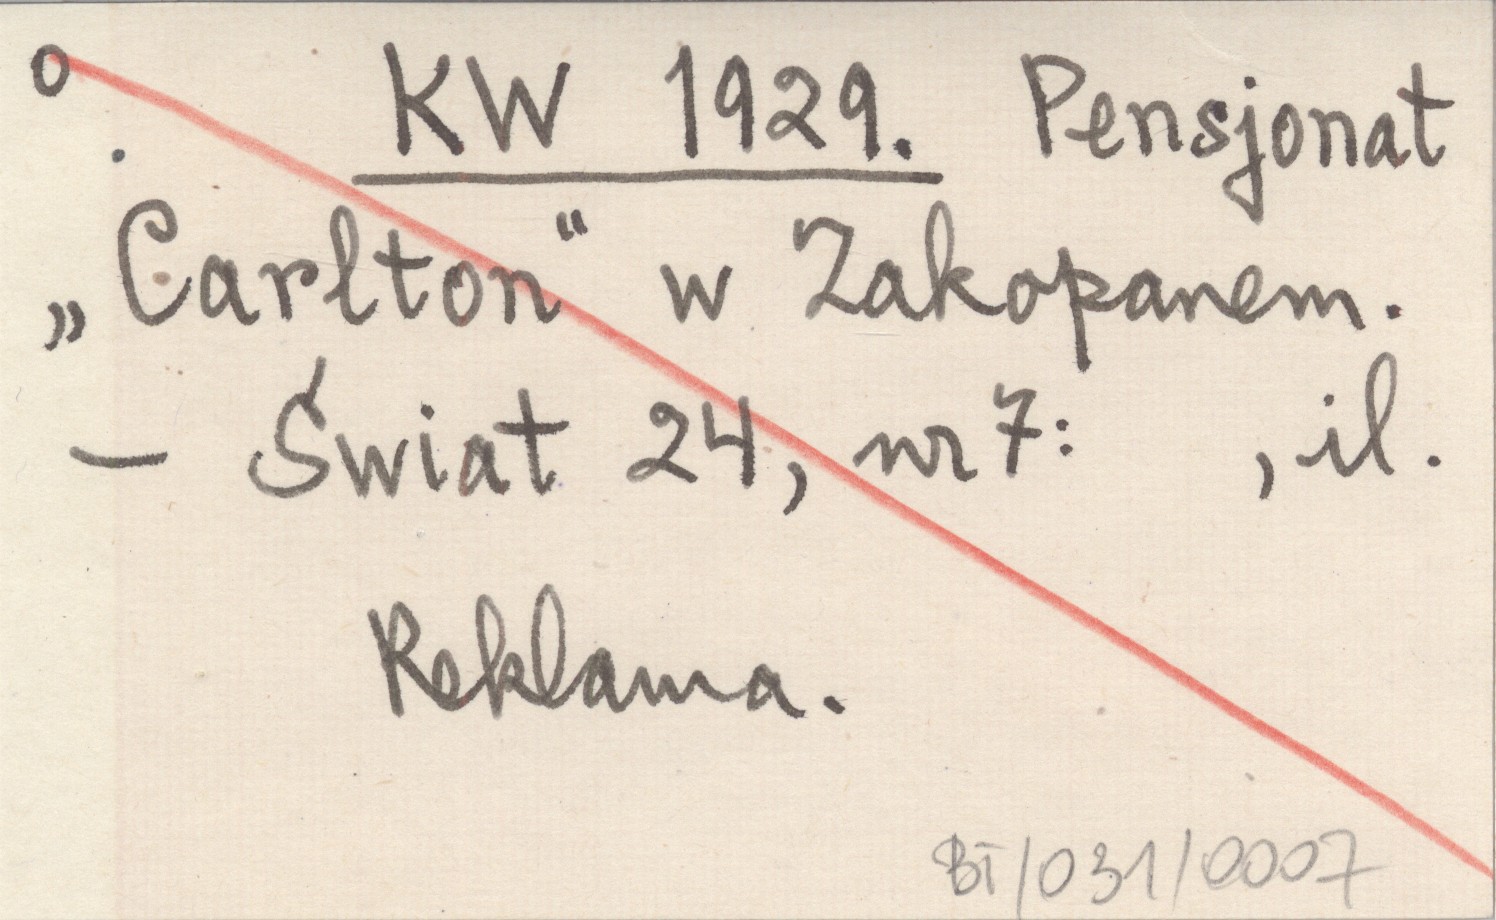 o KW 1929. Pensjonat
„Carlton" w Zakopanem.
— Świat 24, nr 7: , il.
Reklama.
BT/031/0007